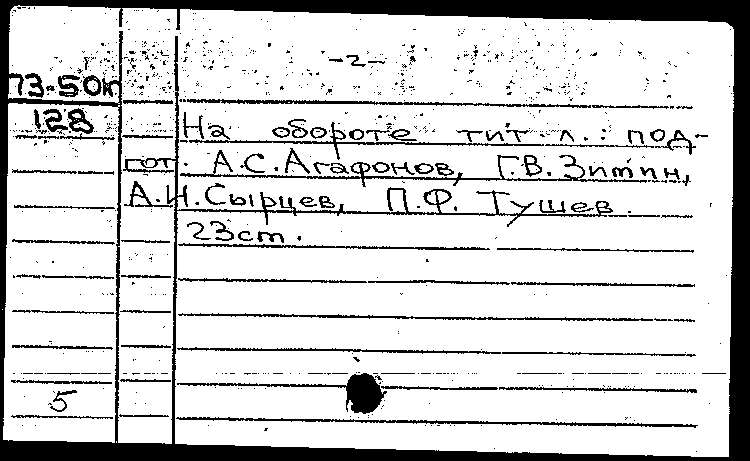 -2-
73-50к
128
На обороте тит. л.: под-
гот. А.С. Агафонов, Г.В. Зимин,
А.И. Сырцев, П.Ф. Тушев.
23 ст.
5